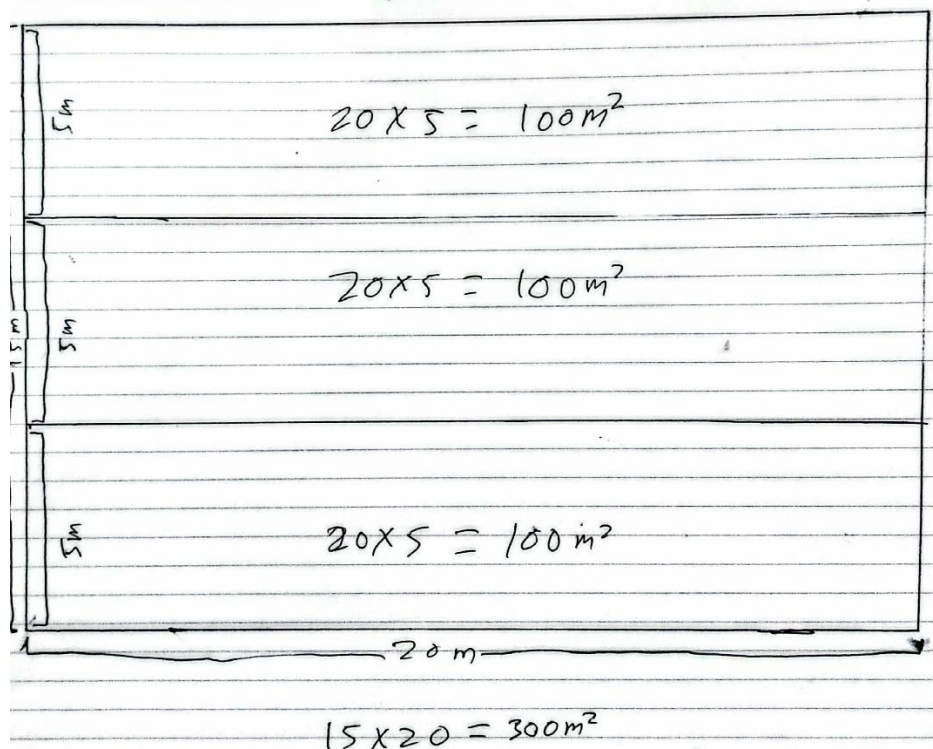 5m
20 X 5 = 100m²
15m
5m
20X5 = 100m²
5m
20X5 = 100m²
20 m
15 X 20 = 300m²